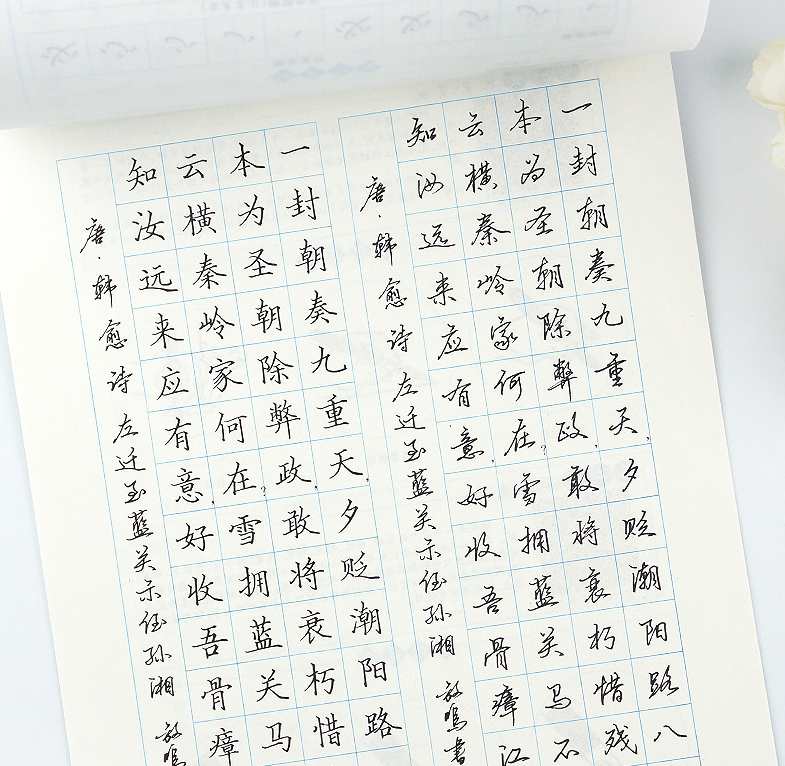 一封朝奏九重天,夕贬潮阳路八
本为圣朝除弊政,敢将衰朽惜残
云横秦岭家何在?雪拥蓝关马不
知汝远来应有意,好收吾骨瘴江
唐·韩愈诗 左迁至蓝关示侄孙湘 书
一封朝奏九重天,夕贬潮阳路
本为圣朝除弊政,敢将衰朽惜
云横秦岭家何在?雪拥蓝关马
知汝远来应有意,好收吾骨瘴
唐·韩愈诗 左迁至蓝关示侄孙湘